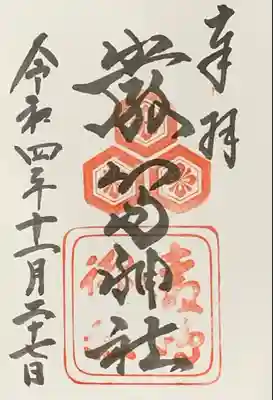 奉拝
嚴島神社
令和四年十一月二十七日